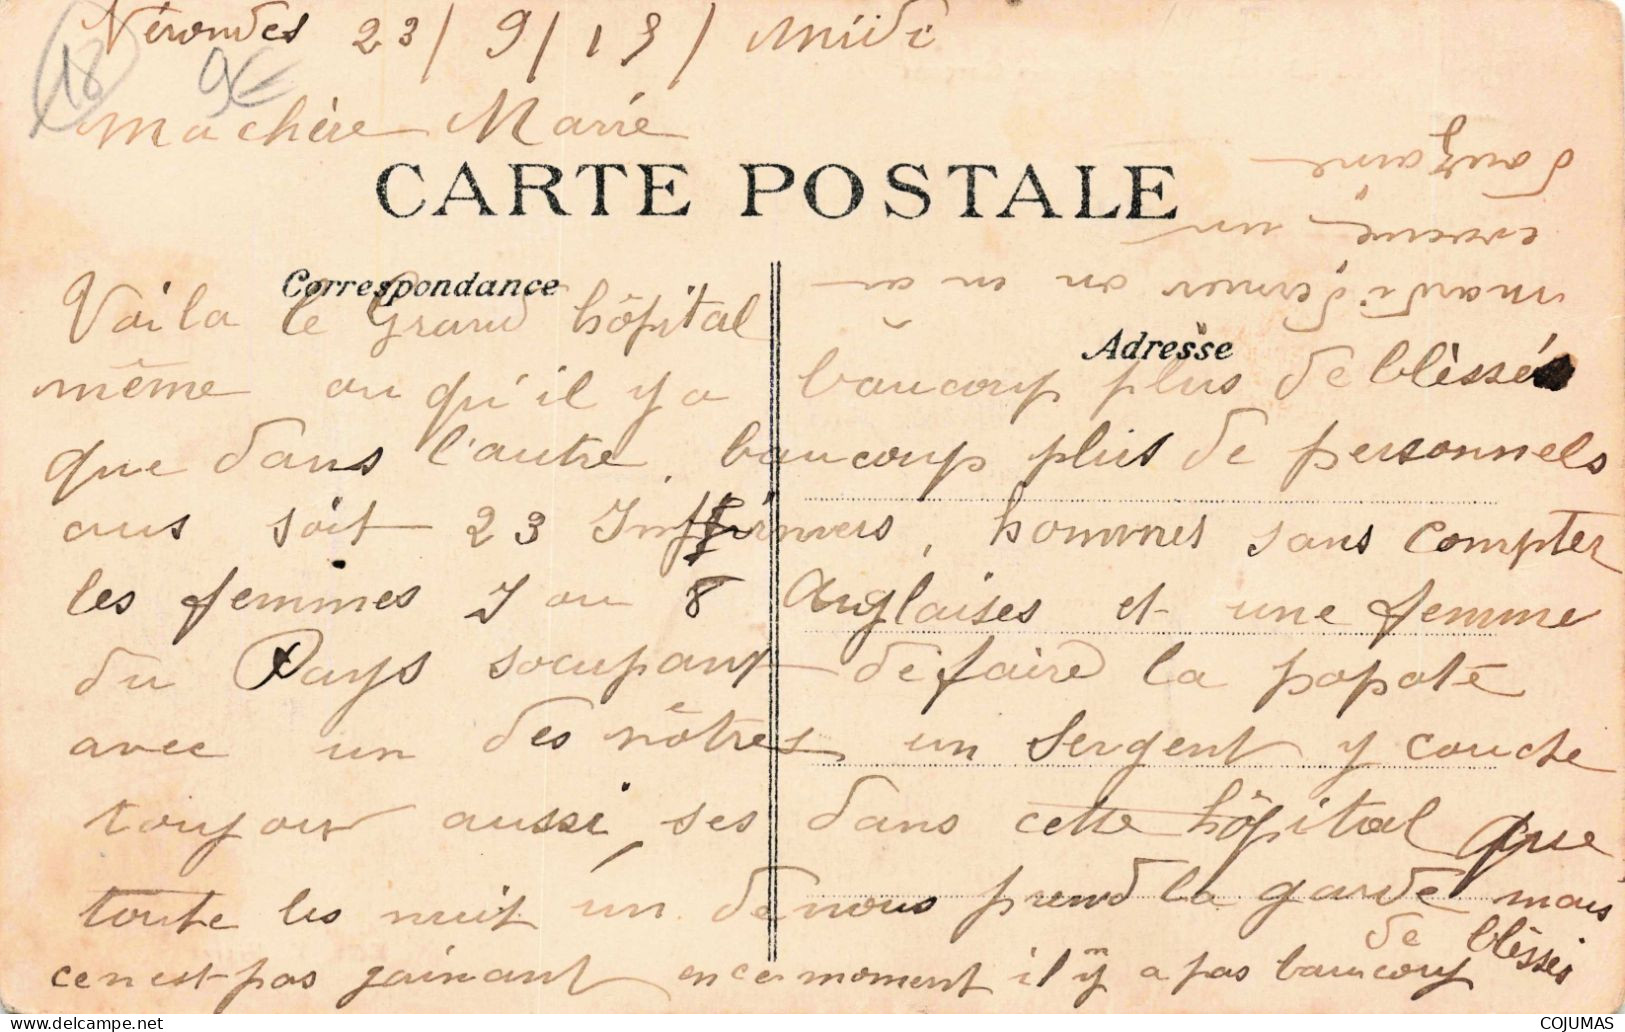 Nérondes 23/9/15/ Midi
18 9€
Ma chère Marie
CARTE POSTALE
Correspondance
Adresse
Voila le Grand hôpital
même ou qu'il y a beaucoup plus de blèssés
que dans l'autre, beaucoup plus de personnels
aus soit 23 Infirmiers, hommes sans compter
les femmes 7 ou 8 Anglaises et une femme
du Pays socupant de faire la popote
avec un des nôtres un Sergent y couche
toujour aussi, ses dans cette hôpital que
toute les nuit un de nous prend la garde mais
cen est pas gainant en ce moment il n'y a pas baucoup de blèssés
mardi dernier on en a
evacué un
douzaine
COJUMAS